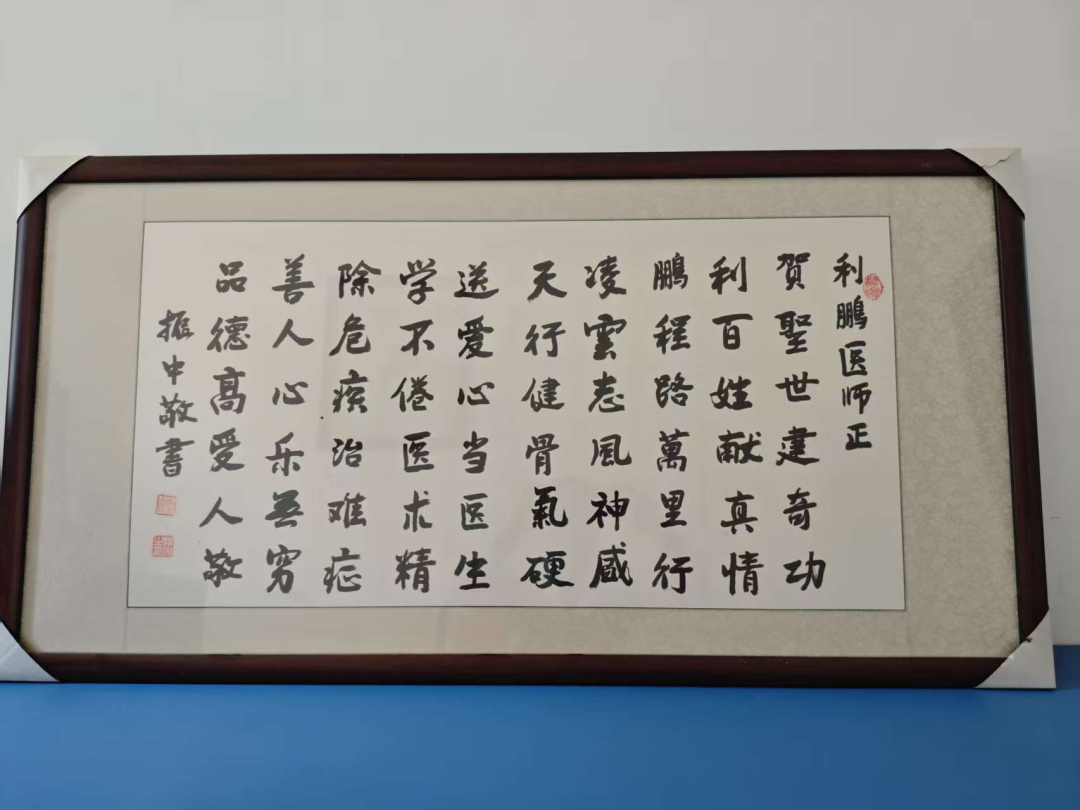 利鵬医师正
賀聖世建奇功
利百姓献真情
鵬程路萬里行
凌雲志風神
天行健骨氣硬
送爱心当医生
学不倦医术精
除危疾治难症
善人心乐無穷
品德高受人敬
振中敬書